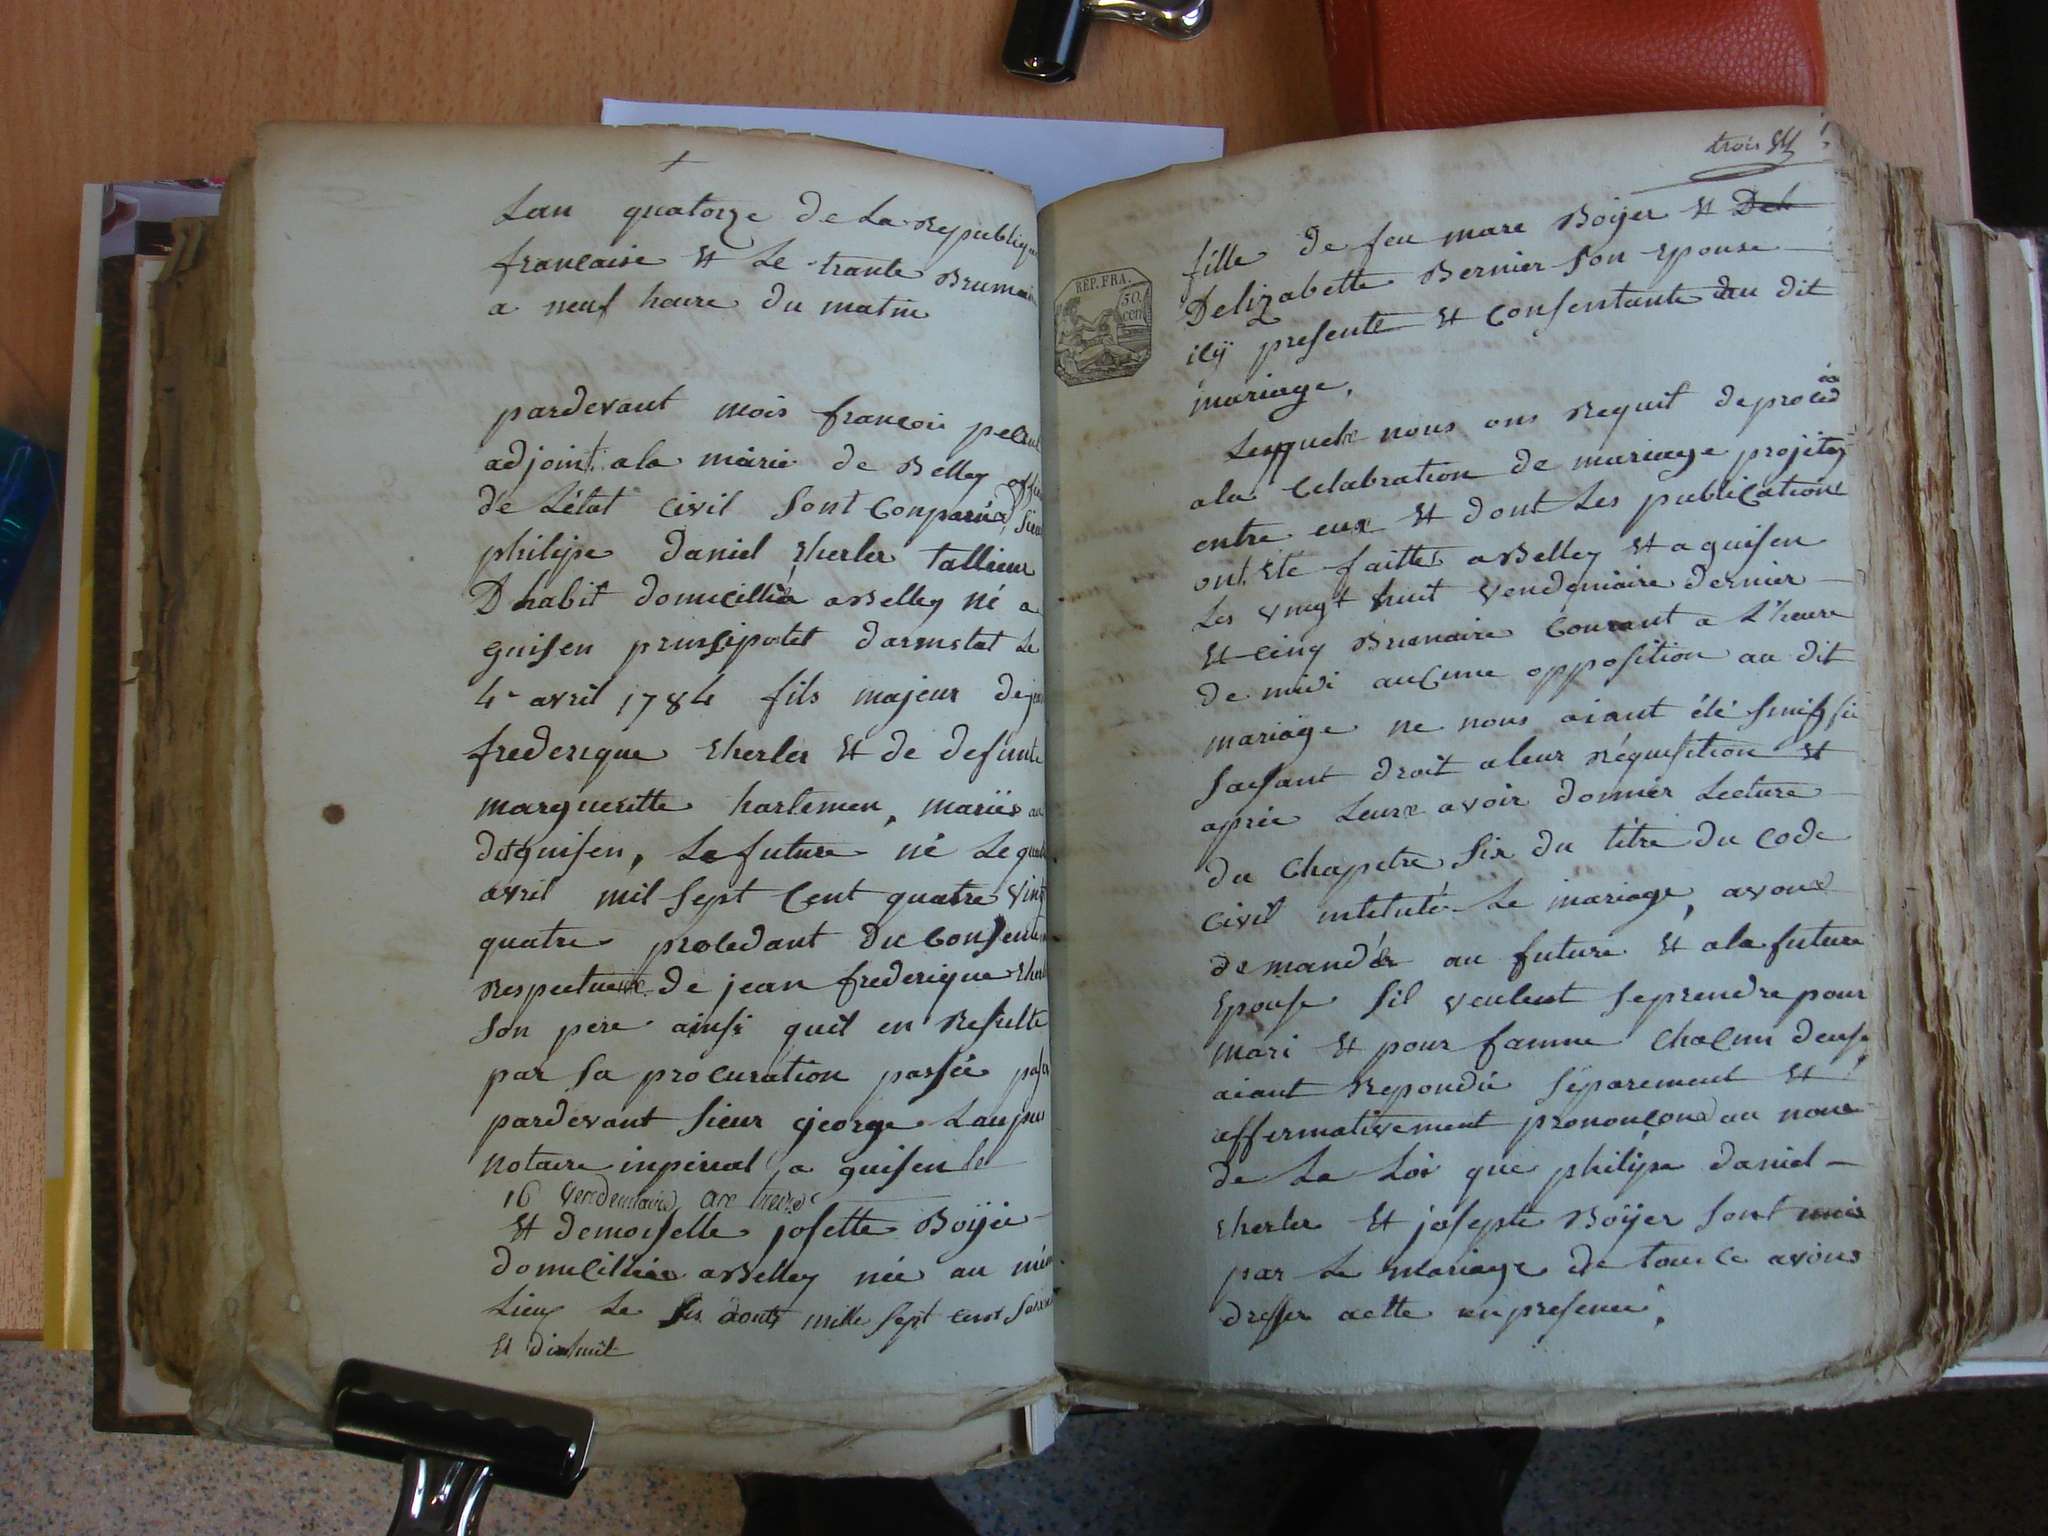 Lan quatorze de La Republique
francaise Et Le trante Brumaire
a neuf heure du matin
pardevant mois francois
adjoint a la mairie de Belley
de Létat civil sont Conparüe, sieur
philipe daniel Eherler tallieur
Dhabit domicillié a Belley né a
guisen principotet darmstat Le
4e avril 1784 fils majeur de jean
frederique Eherler Et de defunte
margueritte hartemen, mariés au
dit guisen, Le future né Le quatre
avril mil sept Cent quatre vingt
quatre procedant du Consentem
Respectueux de jean frederique
son pere ainsi quil en Resulte
par sa procuration passée
pardevant sieur george
notaire inperial a guisen le
16 vendemiaire an treize
Et demoiselle josette Boÿée
domicilliée a Belley née au même
Lieux Le six aoust mille sept cent soixante
Et dixhuit
trois
REP. FRA.
50.
cen
fille de feu marc Boÿer Et Deli
Delizabette Bernier son Epouse
icÿ presente Et consentante au dit
mariage.
Lesquels nous ons Requit de procéder
a la Celabration de mariage projetez
entre eux Et dont Les publications
ont Eté faittes a Belley Et a guisen
Les vingt huit vendemiaire dernier
Et cinq Brumaire Courant a L'heure
de midi auCune opposition au dit
mariage ne nous aiant été
faisant droit a leur Réquisition Et
aprés Leurs avoir donnér Lecture
du Chapitre six du tître du Code
Civil intitulé Le mariage, avons
demandér au future Et a la future
Epouse sil veulent se prendre pour
mari Et pour famme ChaCun deuse
aiant Repondü séparement Et
affermativement prononçons au nom
de La Loi que philipe daniel
Eherler Et josepte Boÿer sont unis
par Le mariage de tout Ce avons
dresser actte en presence,